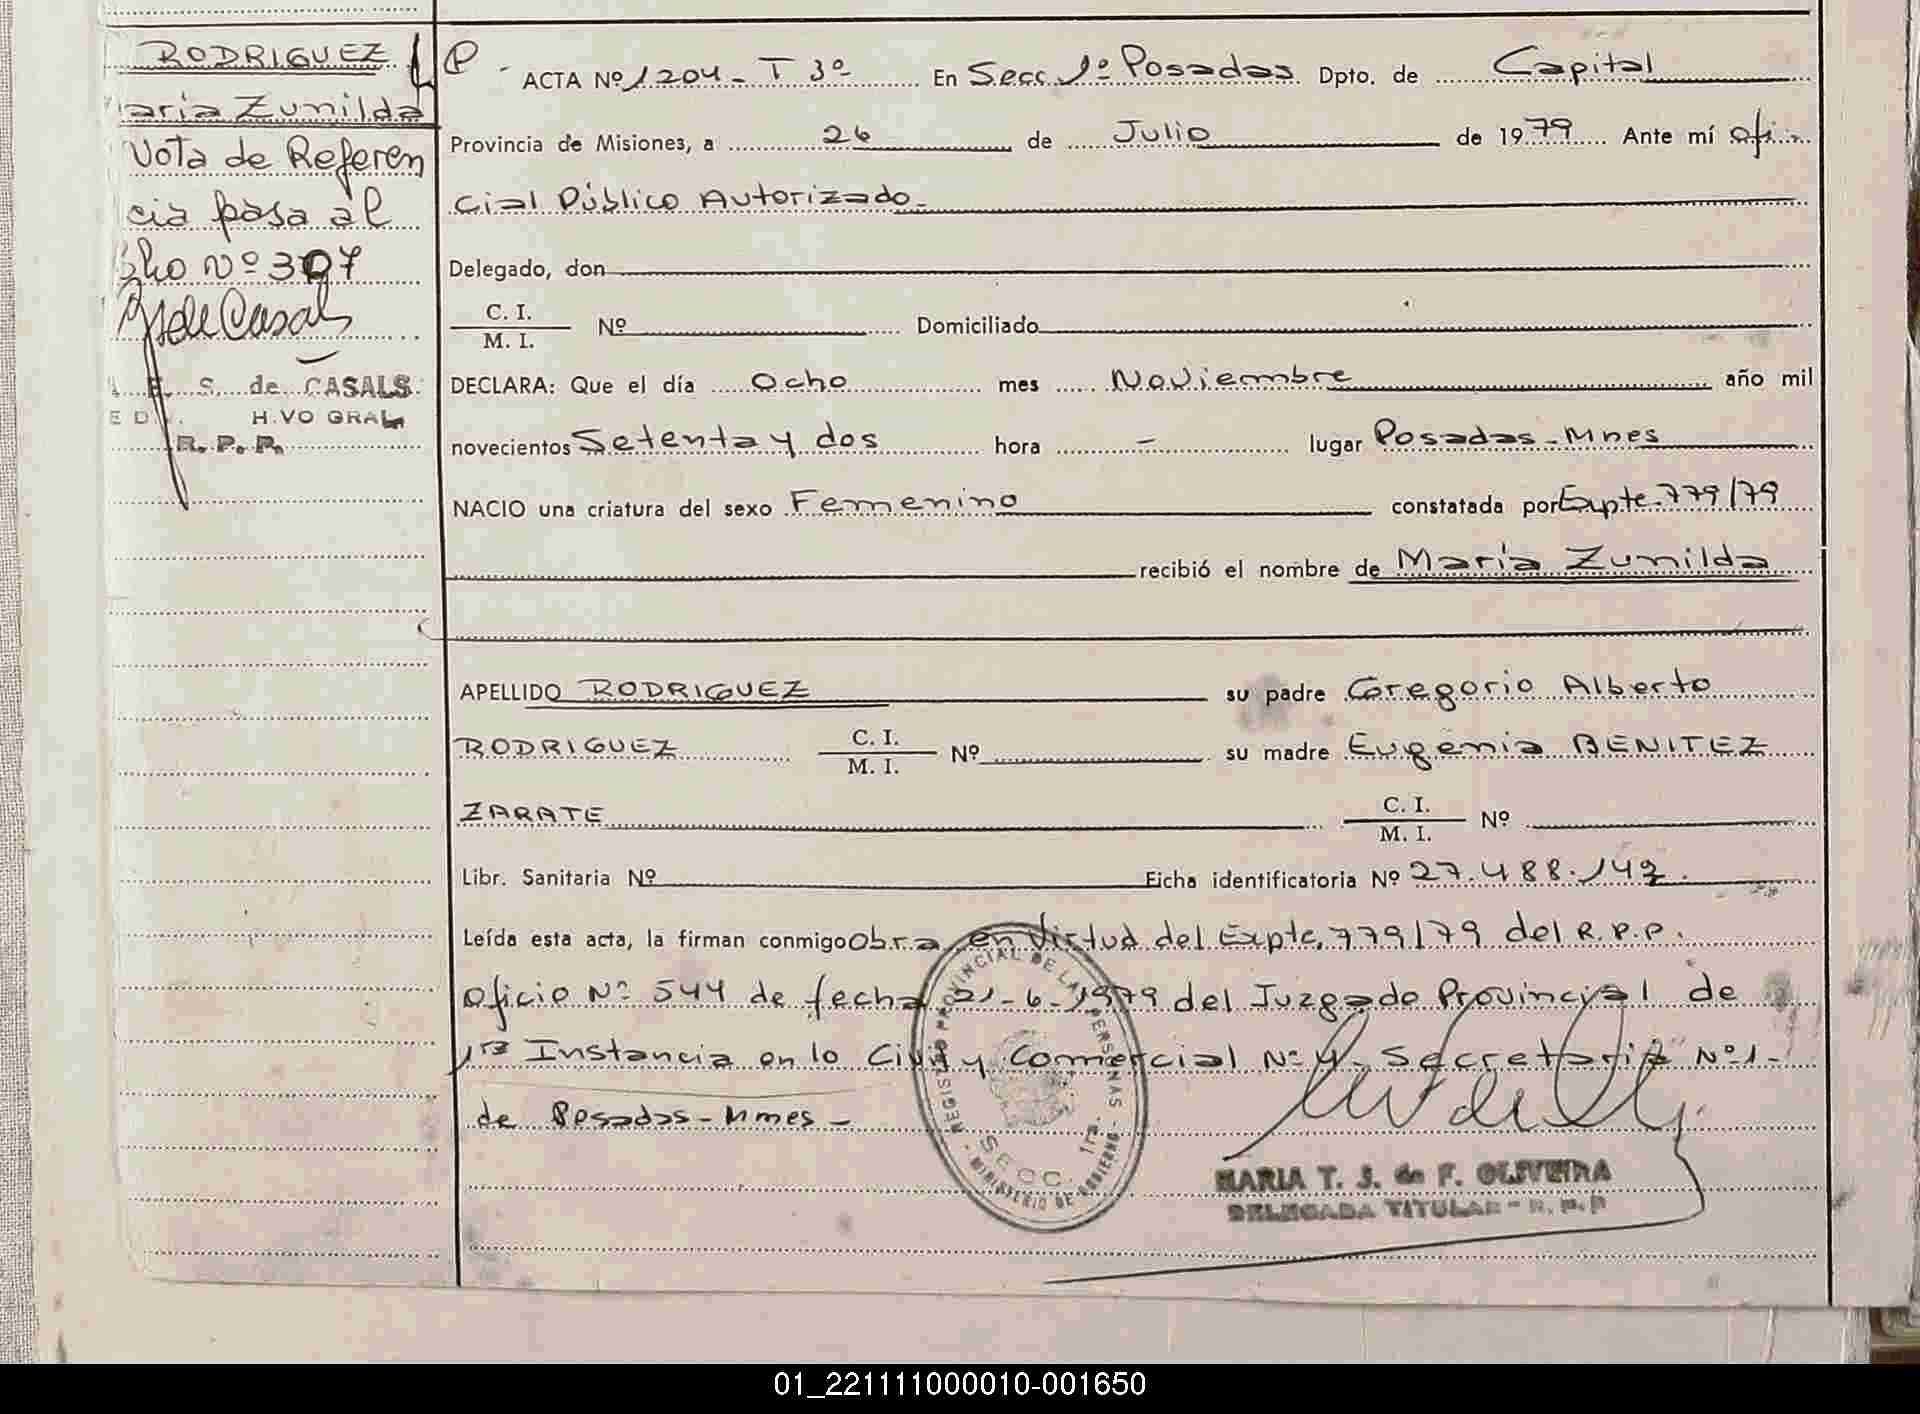 RODRIGUEZ
aria Zunilda
Nota de Referen
cia pasa al
Nº 307
S. de CASALS
H.VO GRAL
R. P. P.
ACTA Nº 1204 - T 3º En Secc. 1º Posadas Dpto. de Capital
Provincia de Misiones, a 26 de Julio de 1979 Ante mí Ofi-
cial Público Autorizado.
Delegado, don
C. I.
M. I. Nº Domiciliado
DECLARA: Que el día Ocho mes Noviembre año mil
novecientos Setenta y dos hora - lugar Posadas - Mnes
NACIO una criatura del sexo Femenino constatada por Expte. 779/79
recibió el nombre de María Zunilda
APELLIDO RODRIGUEZ su padre Gregorio Alberto
RODRIGUEZ C. I. M. I. Nº su madre Eugenia BENITEZ
ZARATE C. I. M. I. Nº
Libr. Sanitaria Nº Ficha identificatoria Nº 27.488.143.
Leída esta acta, la firman conmigo Obra en virtud del Expte. 779/79 del R.P.P.
Oficio Nº 544 de fecha 21-6-1979 del Juzgado Provincial de
1ra Instancia en lo Civil y Comercial Nº 4 - Secretaria Nº 1 -
de Posadas - Mnes -
REGISTRO PROVINCIAL DE LAS PERSONAS - MINISTERIO DE GOBIERNO -
SECC. 1ra.
MARIA T. S. de F. OLIVEIRA
DELEGADA TITULAR - R. P. P
01_221111000010-001650